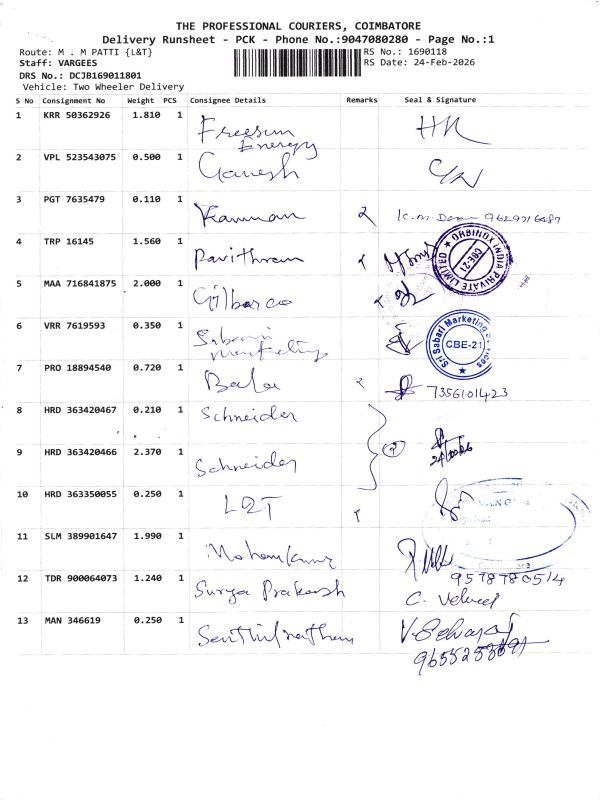 THE PROFESSIONAL COURIERS, COIMBATORE
Delivery Runsheet - PCK - Phone No.:9047080280 - Page No.:1
Route: M . M PATTI {L&T} RS No.: 1690118
Staff: VARGEES RS Date: 24-Feb-2026
DRS No.: DCJB169011801
Vehicle: Two Wheeler Delivery
S No Consignment No Weight PCS Consignee Details Remarks Seal & Signature
1 KRR 50362926 1.810 1 Freesun
Energy
2 VPL 523543075 0.500 1 Ganesh
3 PGT 7635479 0.110 1 Kannan
4 TRP 16145 1.560 1 Pavithran
ORBINOX INDIA PRIVATE LIMITED
CBE-21
5 MAA 716841875 2.000 1 Gilbarco
6 VRR 7619593 0.350 1 Sabari
Marketing
Sri Sabari Marketing Services
CBE-21
7 PRO 18894540 0.720 1 Bala 7356101423
8 HRD 363420467 0.210 1 Schneider
9 HRD 363420466 2.370 1 Schneider
10 HRD 363350055 0.250 1 L&T
11 SLM 389901647 1.990 1 Mohankumar
9578780514
12 TDR 900064073 1.240 1 Surya Prakash
13 MAN 346619 0.250 1 Senthilnathan